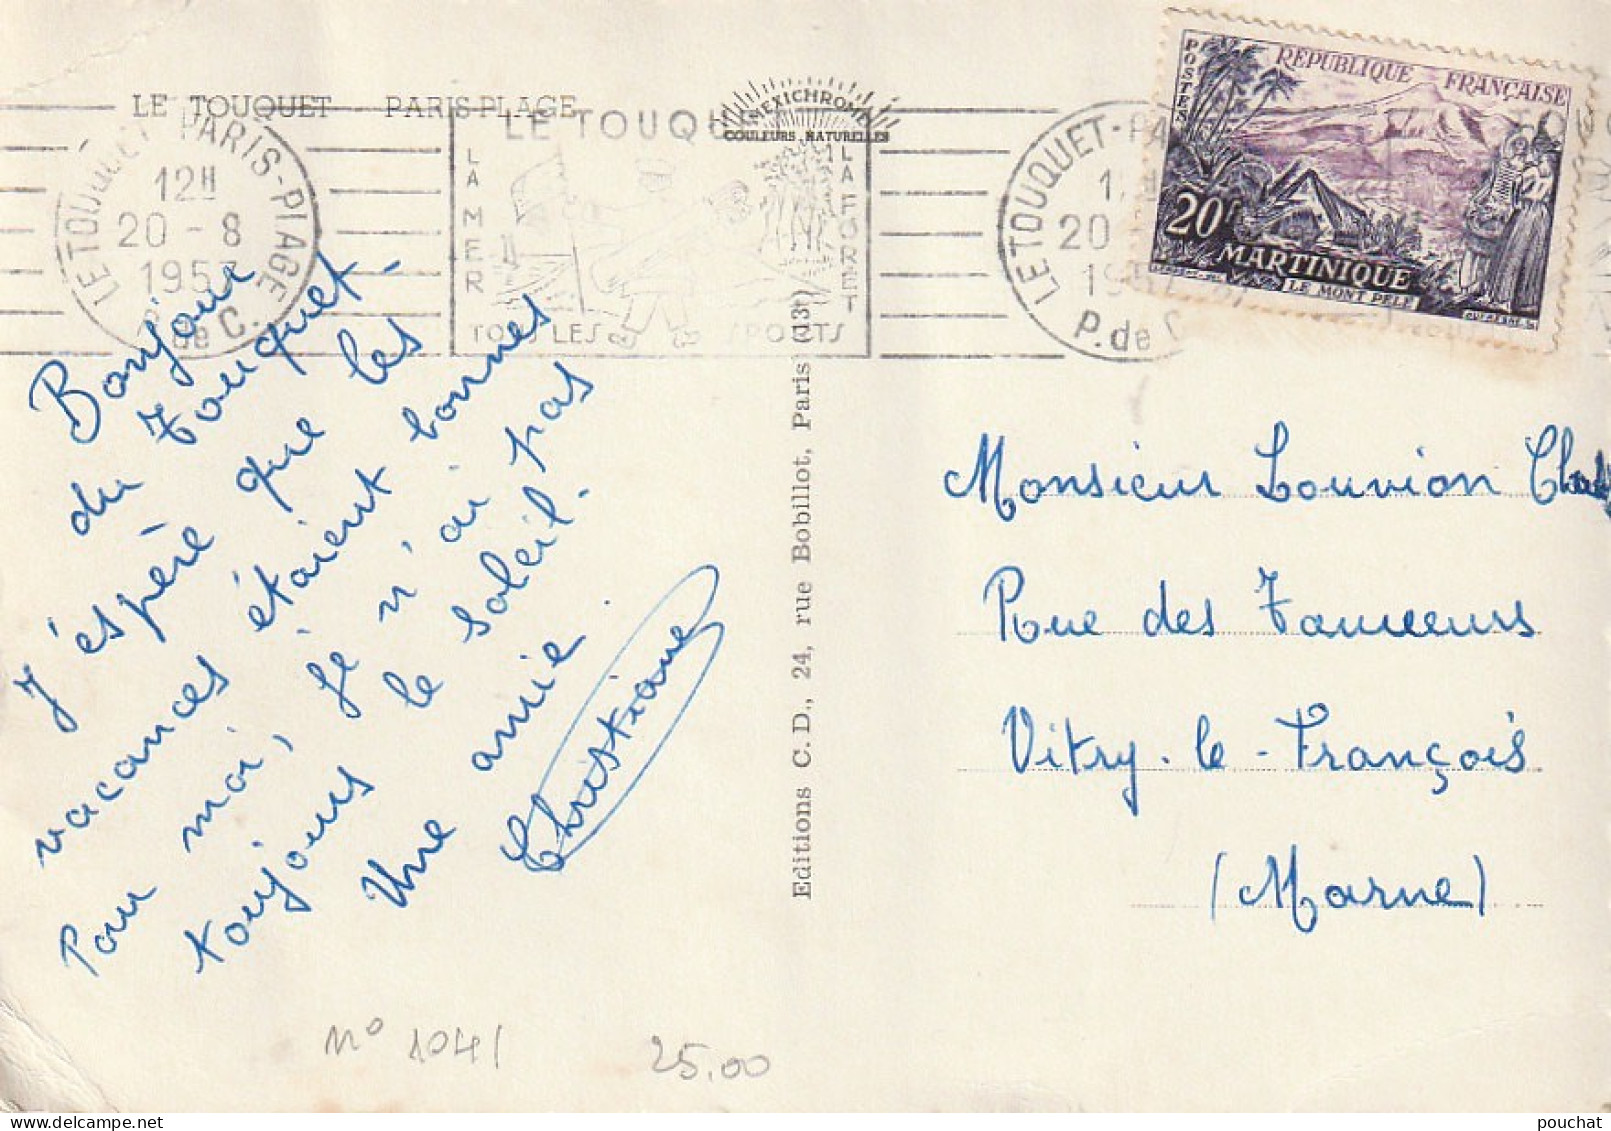 LE TOUQUET PARIS-PLAGE
INEXICHROME
COULEURS NATURELLES
LE TOUQUET PARIS-PLAGE
12H
20 - 8
1957
P. de C.
LE TOUQU
LA MER
LA FORET
TOUS LES SPORTS
LE TOUQUET-PA
20
P. de C
POSTES
REPUBLIQUE FRANÇAISE
20F
MARTINIQUE
LE MONT PELÉ
Bonjour
du Touquet.
J'espère que les
vacances étaient bonnes
Pour moi, je n'ai pas
toujours le soleil.
Une amie
Christiane
Editions C. D., 24, rue Bobillot, Paris (13e)
Monsieur Louvion
Rue des Tanneurs
Vitry-le-François
(Marne)
n° 1041
25,00
pouchat